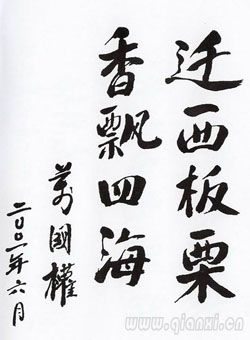 迁西板栗
香飘四海
万國權
二〇〇一年六月
www.qianxi.cn